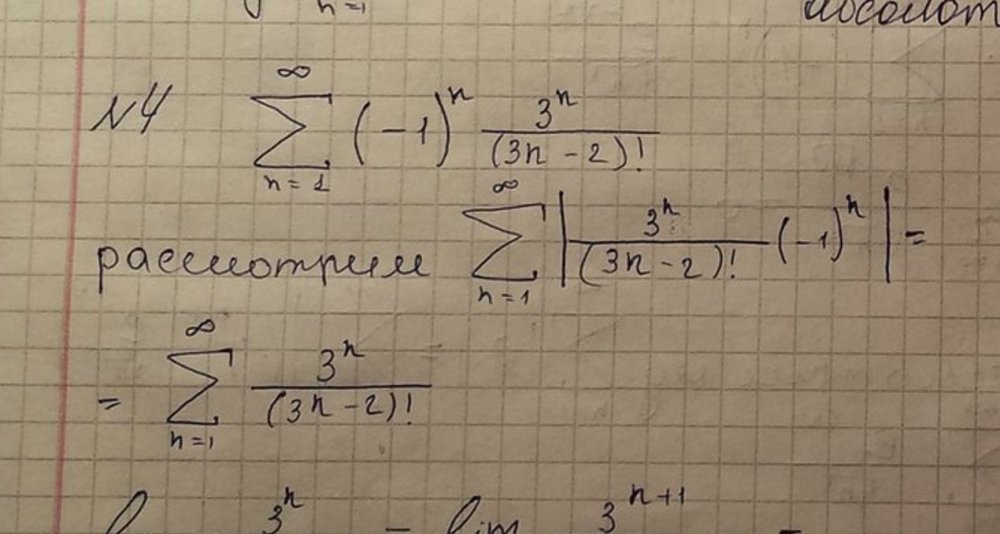 n=1 абсолют
№4 ∞∑n=1 (-1)^n 3^n/(3n-2)!
рассмотрим ∞∑n=1 |3^n/(3n-2)! (-1)^n| =
= ∞∑n=1 3^n/(3n-2)!
3^n - lim 3^(n+1) =